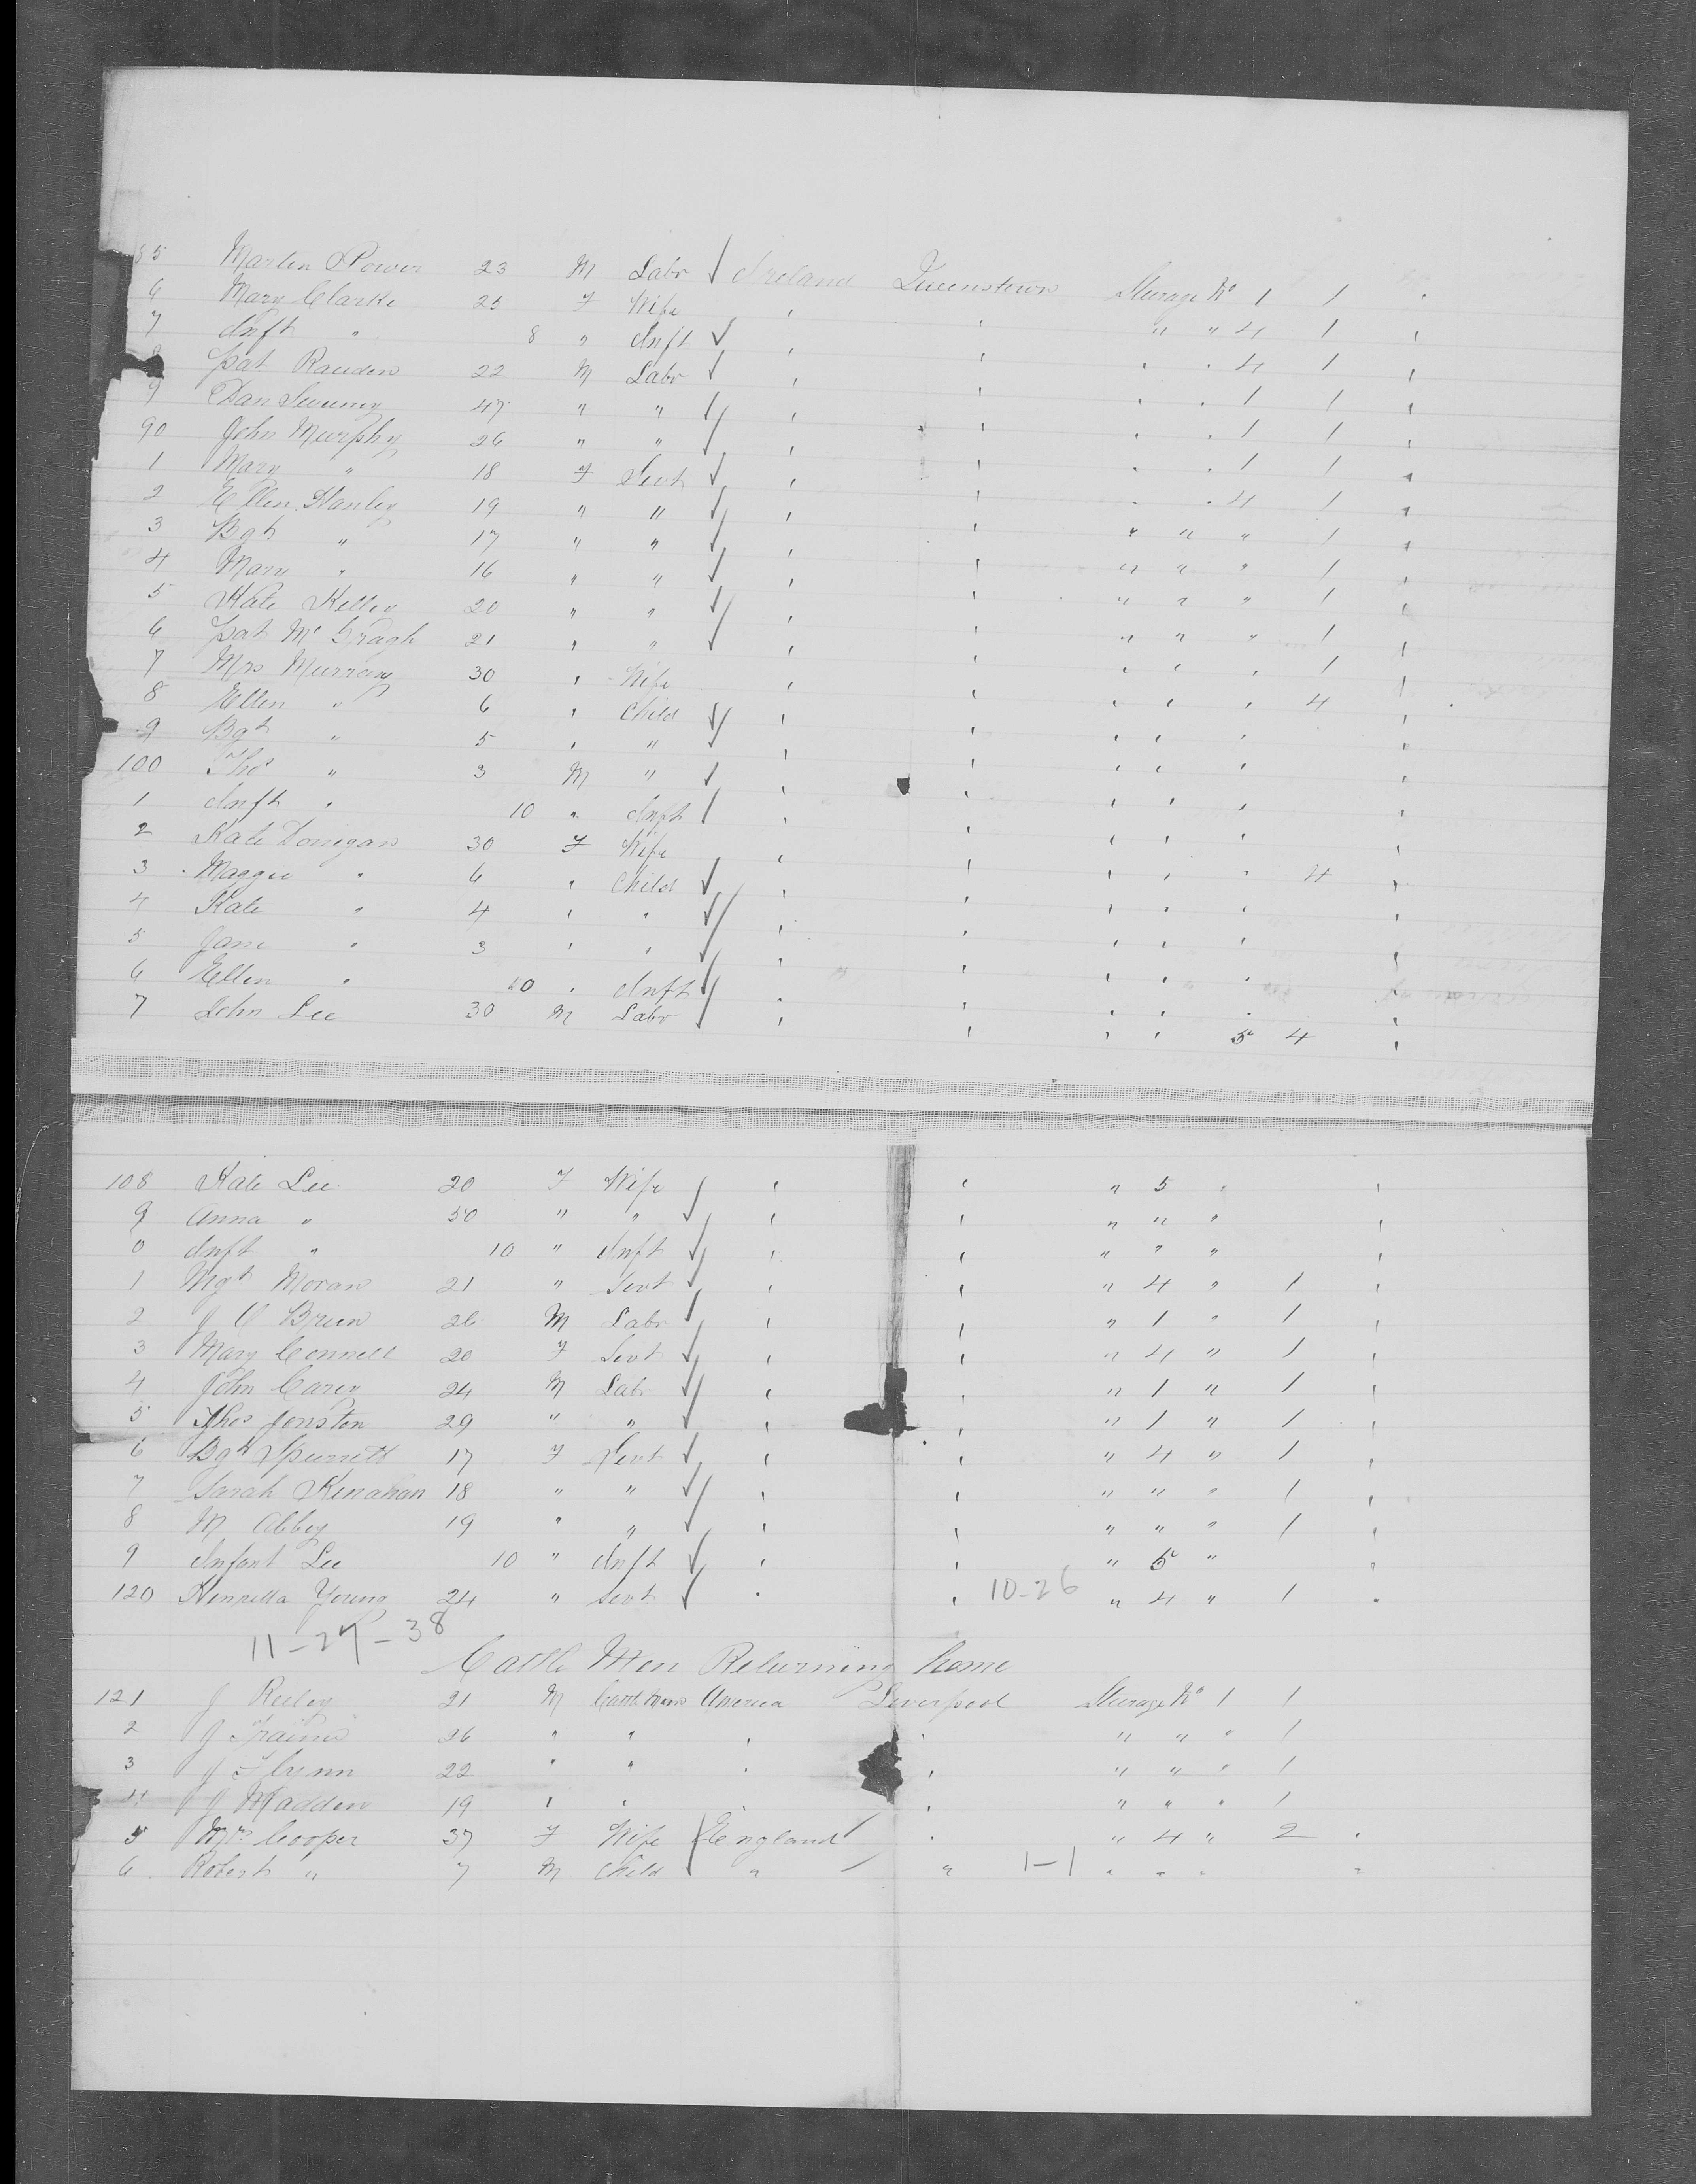 85 Martin Power 23 M Labr Ireland Queenstown Steerage No 1 1
6 Mary Clarke 25 F Wife ' ' " " 4 1 '
7 Inft " 8 " Inft ' ' ' ' 4 1 '
Pat 22 M Labr ' ' ' ' 1 1 '
9 Dan Sweeney 47 " " ' ' ' ' 1 1 '
90 John Murphy 26 " " ' ' ' ' 1 1 '
1 Mary " 18 F Servt ' ' ' ' 4 1 '
2 Ellen Stanley 19 " " ' ' " " " 1 '
3 Bgt " 17 " " ' ' " " " 1 '
4 Mary " 16 " " ' ' " " " 1 '
5 Kate Kelley 20 " " ' ' " " " 1 '
6 Pat Mc Gragh 21 " " ' ' ' ' ' 1 '
7 Mrs Murray 30 " Wife ' ' ' ' ' 4 '
8 Ellen " 6 " Child ' ' ' ' ' "
9 Bgt " 5 " " ' ' ' ' ' '
100 Thos " 3 M " ' ' ' ' ' '
1 Inft " 10 " Inft ' ' ' ' ' '
2 Kate Donigan 30 F Wife ' ' ' ' ' 4 '
3 Maggie " 6 " Child ' ' ' ' ' '
4 Kate " 4 " " ' ' ' ' ' '
5 Jane " 3 " " ' ' ' ' ' '
6 Ellen " 10 " Inft ' ' ' ' ' '
7 John Lee 30 M Labr ' ' ' ' 5 4 '
108 Kate Lee 20 F Wife ' ' " 5 " '
9 Anna " 50 " " ' ' " " " '
0 Inft " 10 " Inft ' ' " " " '
1 Mgt Moran 21 " Servt ' ' " 4 " 1 '
2 J O Brien 26 M Labr ' ' " 1 " 1 '
3 Mary Connell 20 F Servt ' ' " 4 " 1 '
4 John Carey 24 M Labr ' ' " 1 " 1 '
5 Thos Jonston 29 " " ' ' " 1 " 1 '
6 Bgt 17 F Servt ' ' " 4 " 1 '
7 Sarah Kenahan 18 " " ' ' " " " 1 '
8 M Abbey 19 " " ' ' " " " 1 '
9 Infant Lee 10 " Inft ' ' " 5 " '
120 Henrietta Young 24 " Servt ' ' 10-26 " 4 " 1 '
11-27-38
Cattle Men Returning home
121 J Reiley 21 M Cattle Man America Liverpool Steerage No 1 1
2 J 26 " " ' ' " " " 1
3 J Flynn 22 " " ' ' " " " 1
4 J Madden 19 " " ' ' " " " 1
5 Mrs Cooper 37 F Wife England ' " 4 " 2 '
6 Robert " 7 M Child " " 1-1 " " " "